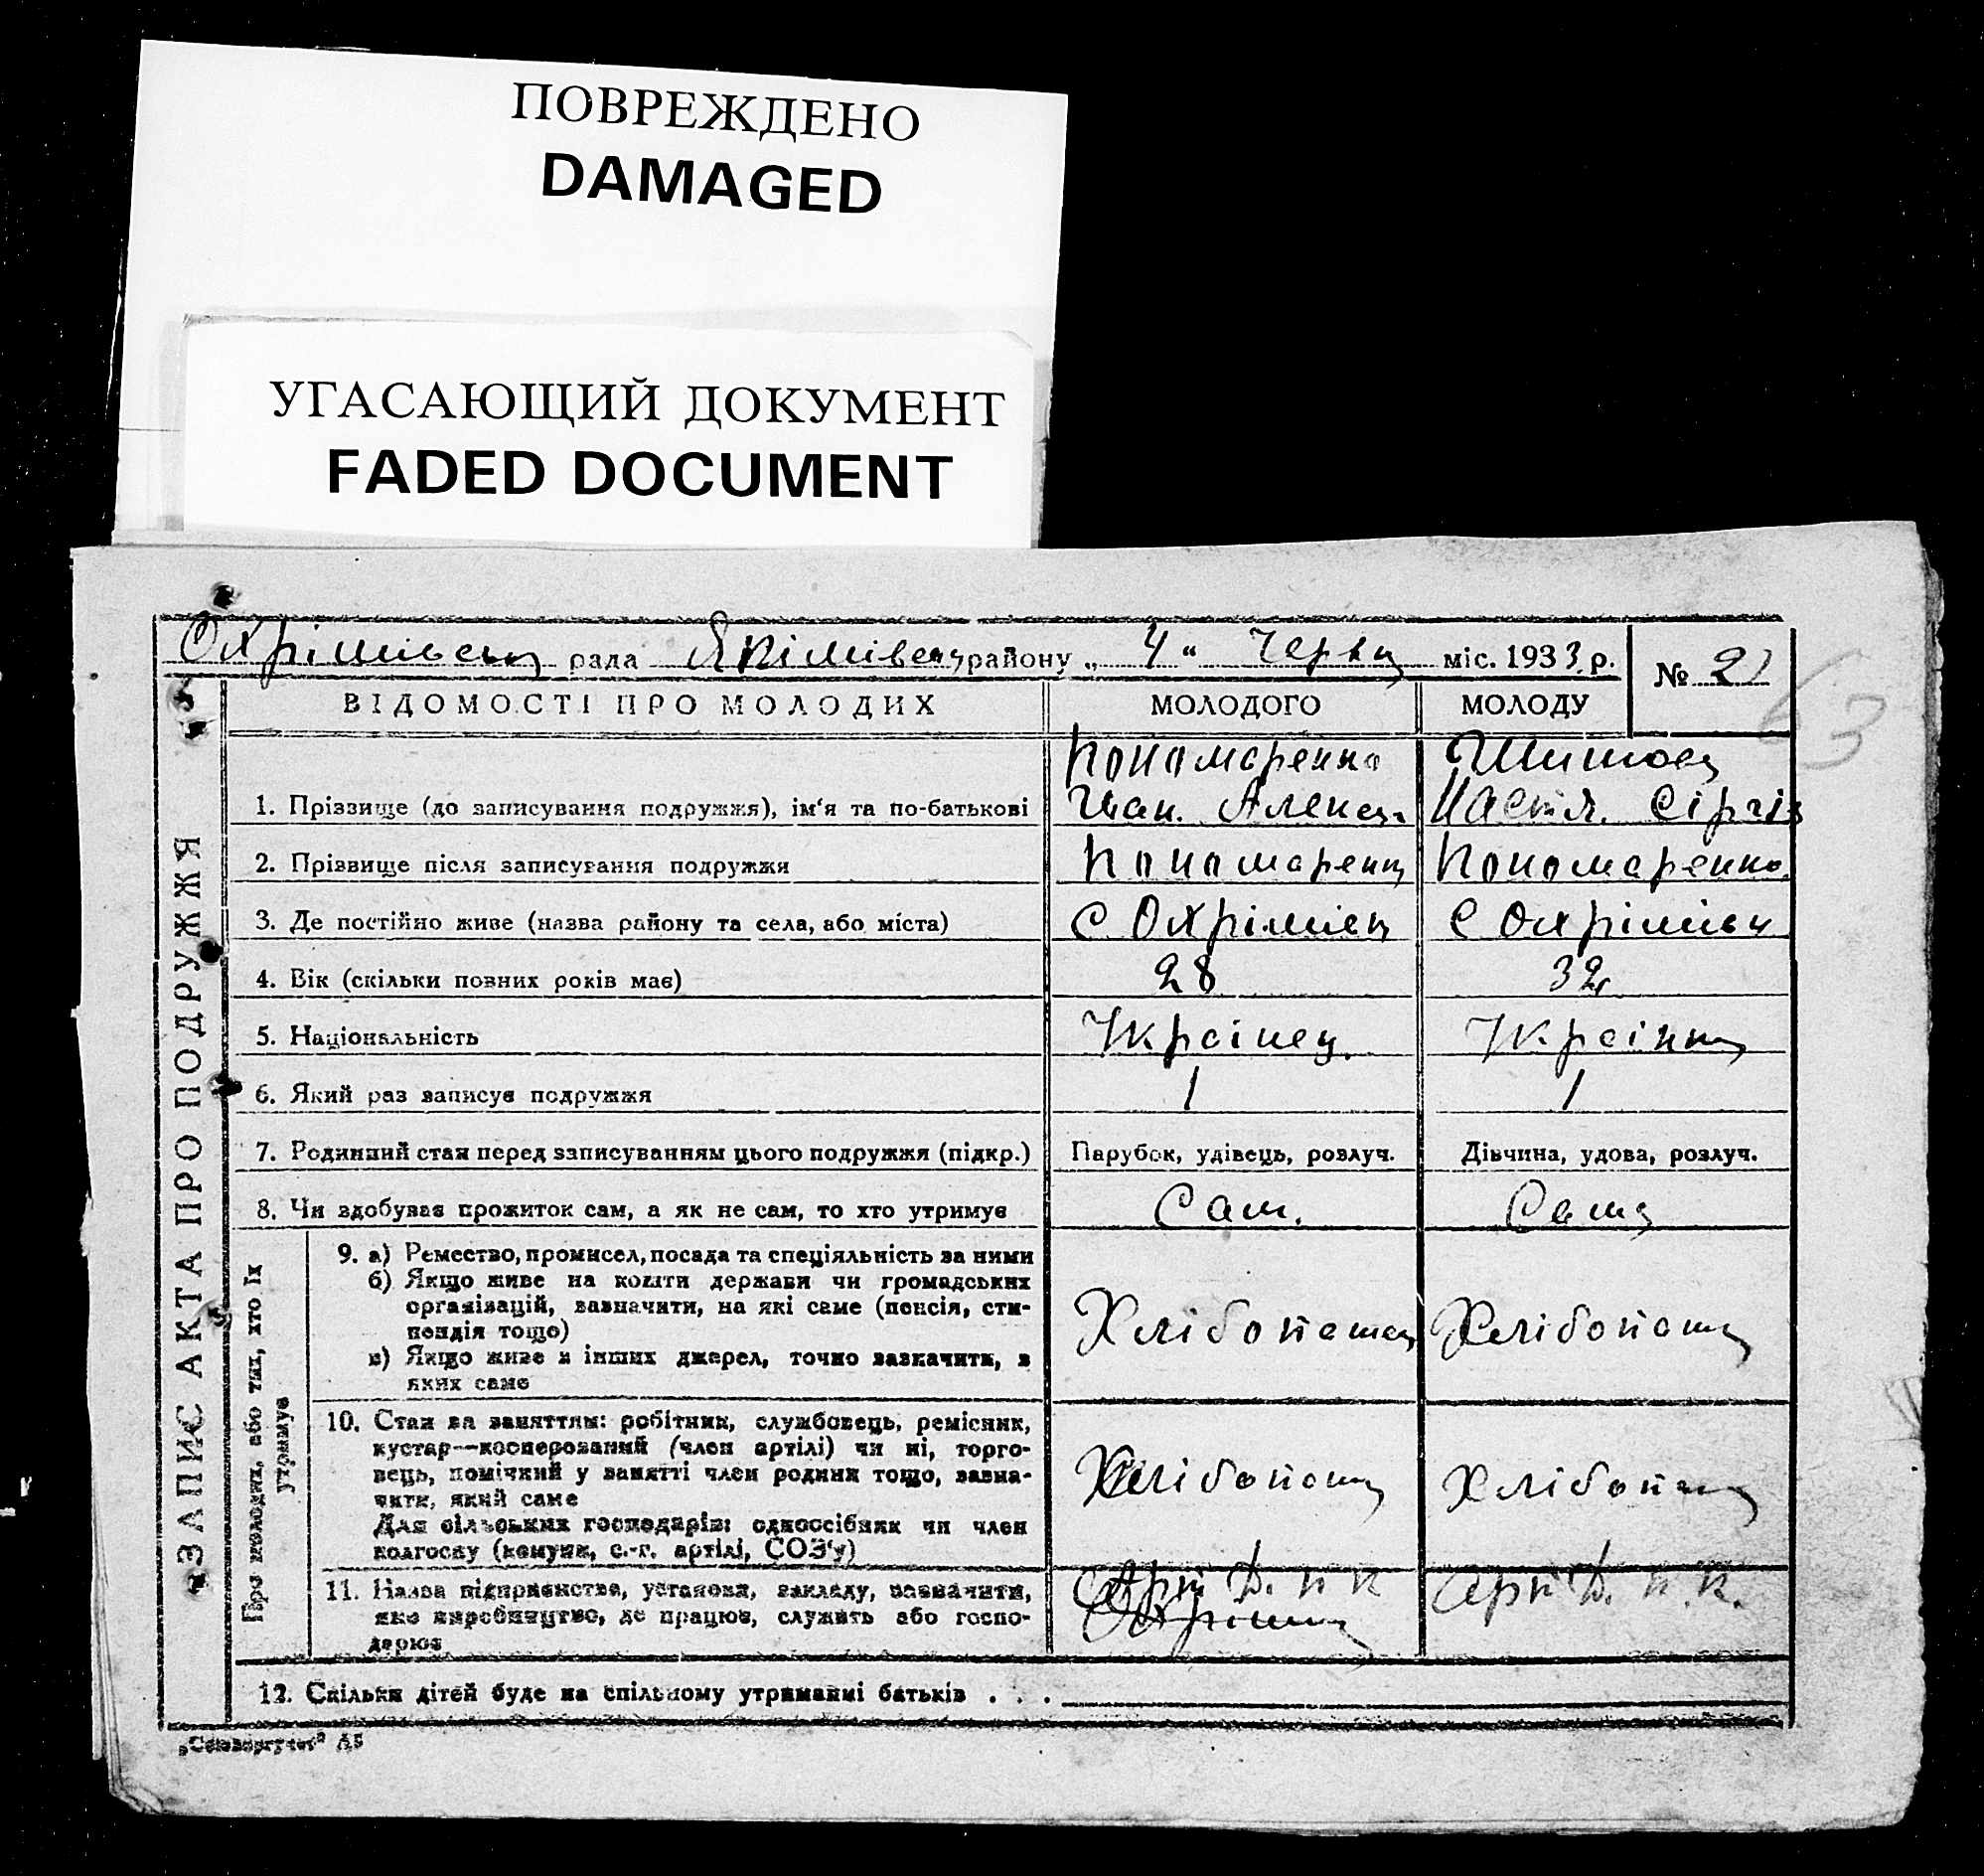 ПОВРЕЖДЕНО
DAMAGED
УГАСАЮЩИЙ ДОКУМЕНТ
FADED DOCUMENT
рада району „ 4 " міс. 1933 р.
№ 21
63
ВІДОМОСТІ ПРО МОЛОДИХ МОЛОДОГО МОЛОДУ
ЗАПИС АКТА ПРО ПОДРУЖЖЯ
Пономаренко
1. Прізвище (до записування подружжя), ім'я та по-батькові Іван.
2. Прізвище після записування подружжя Пономаренко Пономаренко
3. Де постійно живе (назва району та села, або міста) С С
4. Вік (скільки повних років має) 28 32
5. Національність Українец.
6. Який раз записує подружжя 1 1
7. Родинний стан перед записуванням цього подружжя (підкр.) Парубок, удівець, розлуч. Дівчина, удова, розлуч.
8. Чи здобуває прожиток сам, а як не сам, то хто утримує Сам. Сама
Про молодих, або тих, хто їх
утримує
9. а) Ремество, промисел, посада та спеціяльність за ними
б) Якщо живе на кошти держави чи громадських
організацій, зазначити, на які саме (пенсія, сти-
пендія тощо)
в) Якщо живе з інших джерел, точно зазначити, з
яких саме
10. Стан за заняттям: робітник, службовець, ремісник,
кустар—кооперований (член артілі) чи ні, торго-
вець, помічний у занятті член родини тощо, зазна-
чити, який саме
Для сільських господарів: одноосібник чи член
колгоспу (комуни, с.-г. артілі, СОЗ'у)
11. Назва підприємства, установи, закладу, зазначити,
яке виробництво, де працює, служить або госпо-
дарює
12. Скільки дітей буде на спільному утриманні батьків . . .